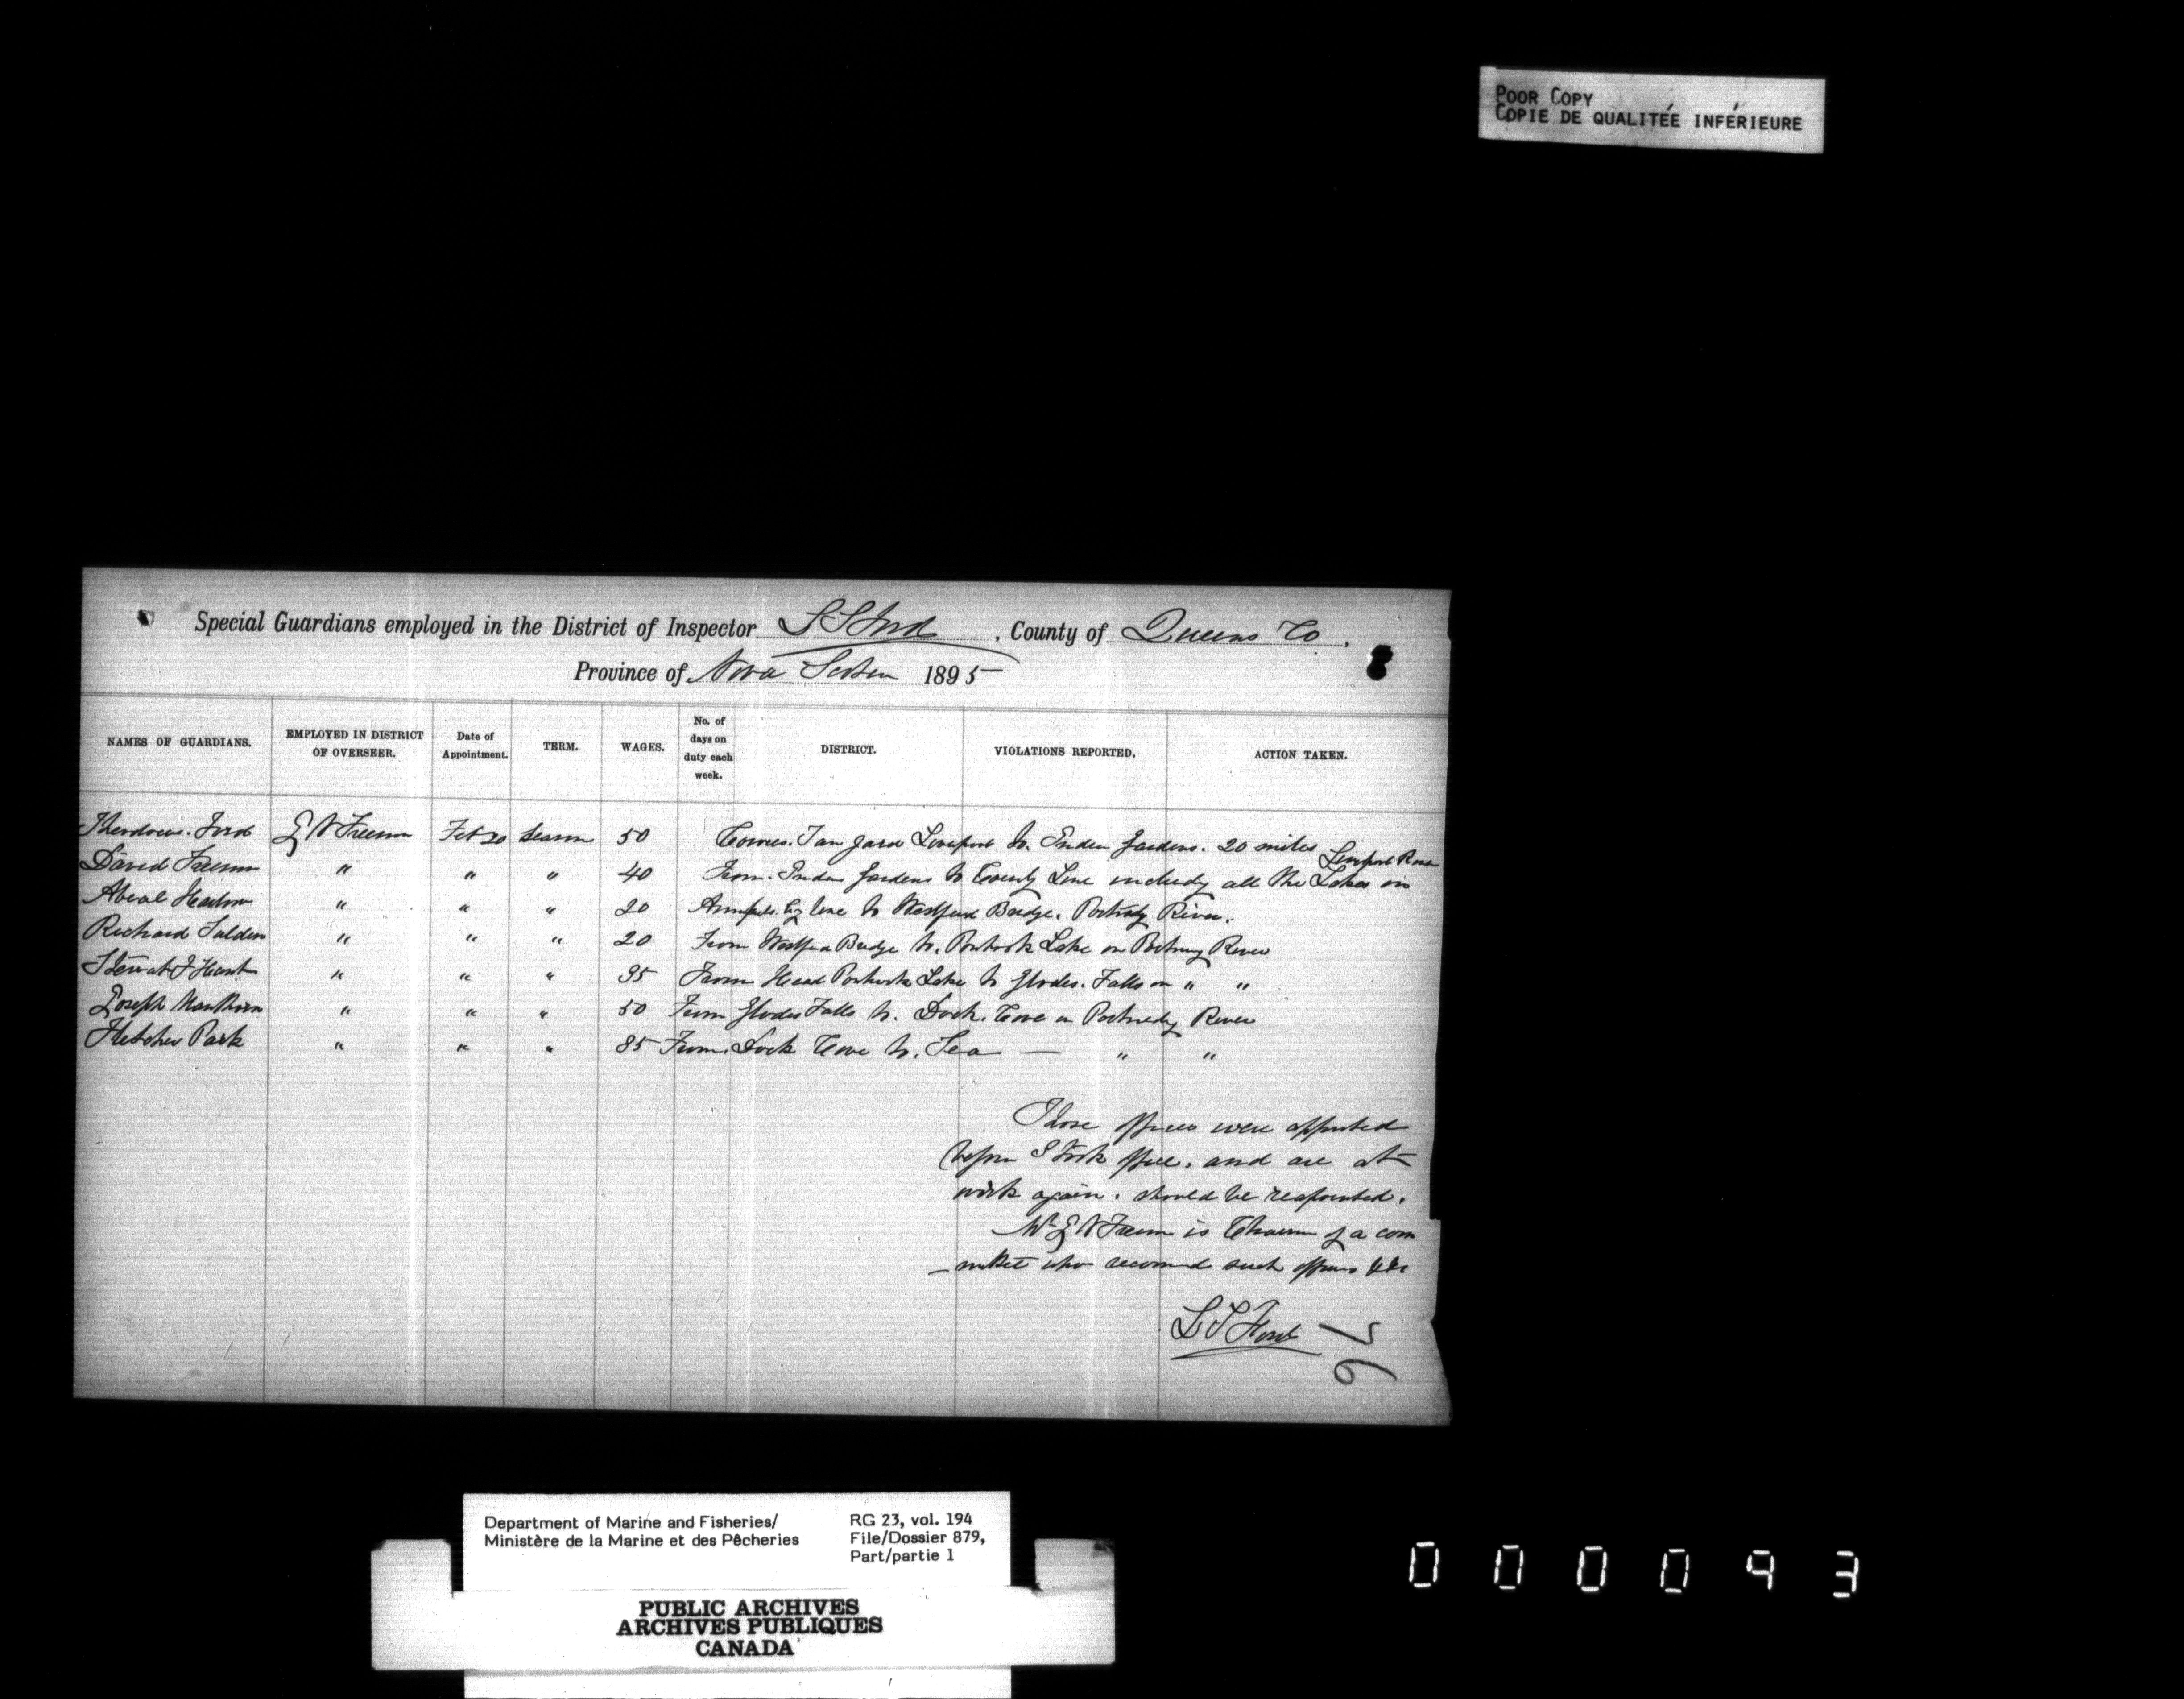 POOR COPY
COPIE DE QUALITÉE INFÉRIEURE
Special Guardians employed in the District of Inspector L S Ford, County of Queens Co,
Province of Nova Scotia 1895
NAMES OF GUARDIANS. EMPLOYED IN DISTRICT OF OVERSEER. Date of Appointment. TERM. WAGES. No. of days on duty each week. DISTRICT. VIOLATIONS REPORTED. ACTION TAKEN.
Ford Freeman Feb 20 Season 50 Liverpool to Indian Gardens. 20 miles Liverpool River
David Freeman " " " 40 From Indian Gardens to County Line all the Lakes on
Harlow " " " 20 line to Westfield Bridge. River.
Richard " " " 20 From Bridge to Lake on River
Hunt " " " 35 From Head Lake to Glodes. Falls on " "
Joseph " " " 50 From Glodes Falls to Dock. Cove on River
Fletcher Park " " " 85 From Dock Cove to. Sea — " "
Those officers were appointed
before I took office. and are at
work again. should be reappointed.
Mr Freeman is Chairman of a com
-mittee who recommend such officers
L S Ford
76
Department of Marine and Fisheries/
Ministère de la Marine et des Pêcheries
RG 23, vol. 194
File/Dossier 879,
Part/partie 1
PUBLIC ARCHIVES
ARCHIVES PUBLIQUES
CANADA
000093